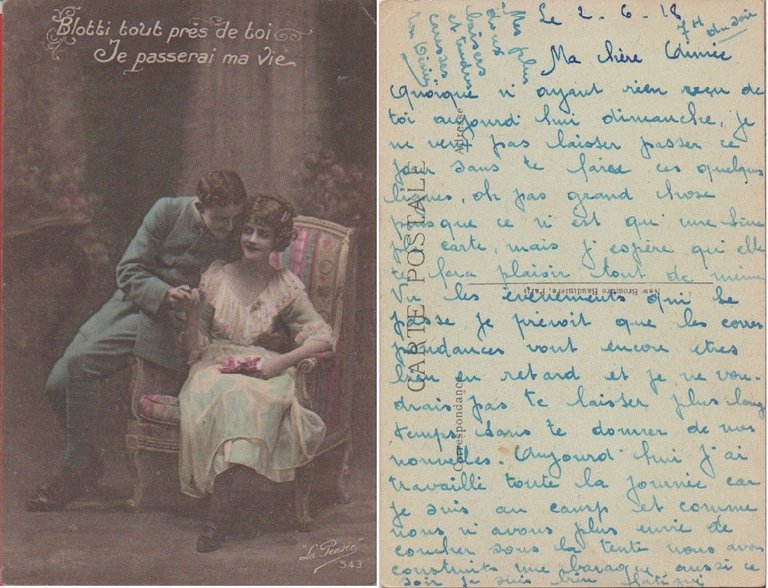 Blotti tout près de toi
Je passerai ma vie
"La Pensée"
543
Le 2-6-18
7H du soir
Ma chère Edmée
Quoique n'ayant rien reçu de
toi aujourd'hui dimanche, je
ne veux pas laisser passer ce
jour sans te faire ces quelques
lignes, oh pas grand chose
puisque ce n'est qu'une sim
ple carte, mais j'espère qu'elle
te fera plaisir tout de même
Vu les évènements qui se
passe je prévoit que les corres
pondances vont encore êtres
bien en retard et je ne vou-
drais pas te laisser plus long
temps sans te donner de mes
nouvelles. Aujourd'hui j'ai
travaillé toute la journée car
je suis au camp et comme
nous n'avons plus envie de
coucher sous la tente nous avons
construits une baraque aussi ce
soir je suis bien fatigué
Mes plus
doux
baisers
et tendres
caresses
CARTE POSTALE
Correspondance
Adresse
New Bromure Baudinière, Paris